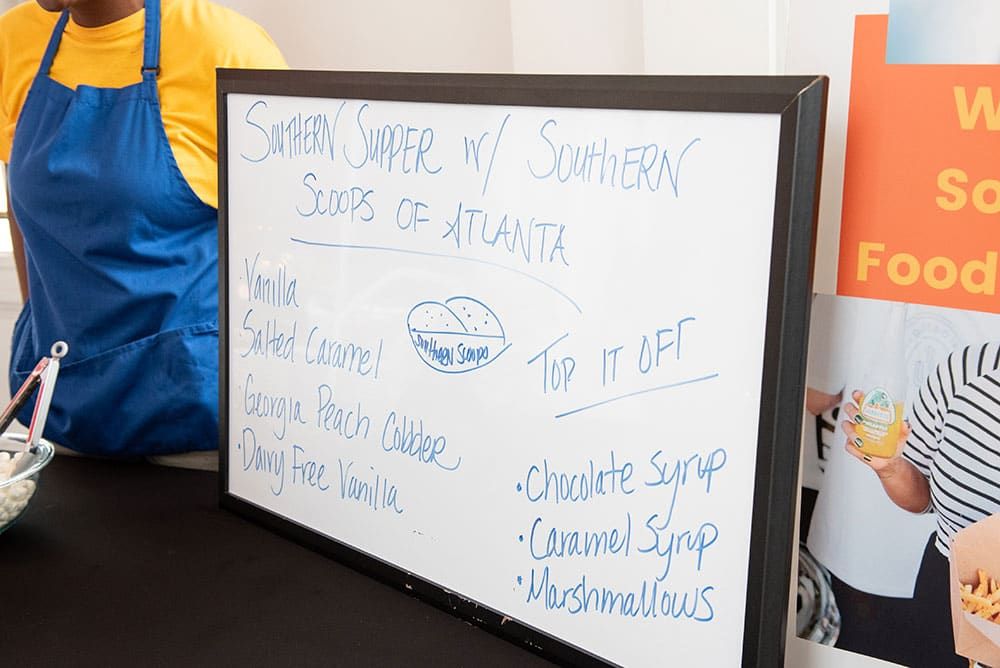 SOUTHERN SUPPER W/ SOUTHERN
SCOOPS OF ATLANTA
·Vanilla
·Salted Caramel
·Georgia Peach Cobbler
·Dairy Free Vanilla
Southern Scoops
TOP IT OFF
·Chocolate Syrup
·Caramel Syrup
·Marshmallows
W
So
Food